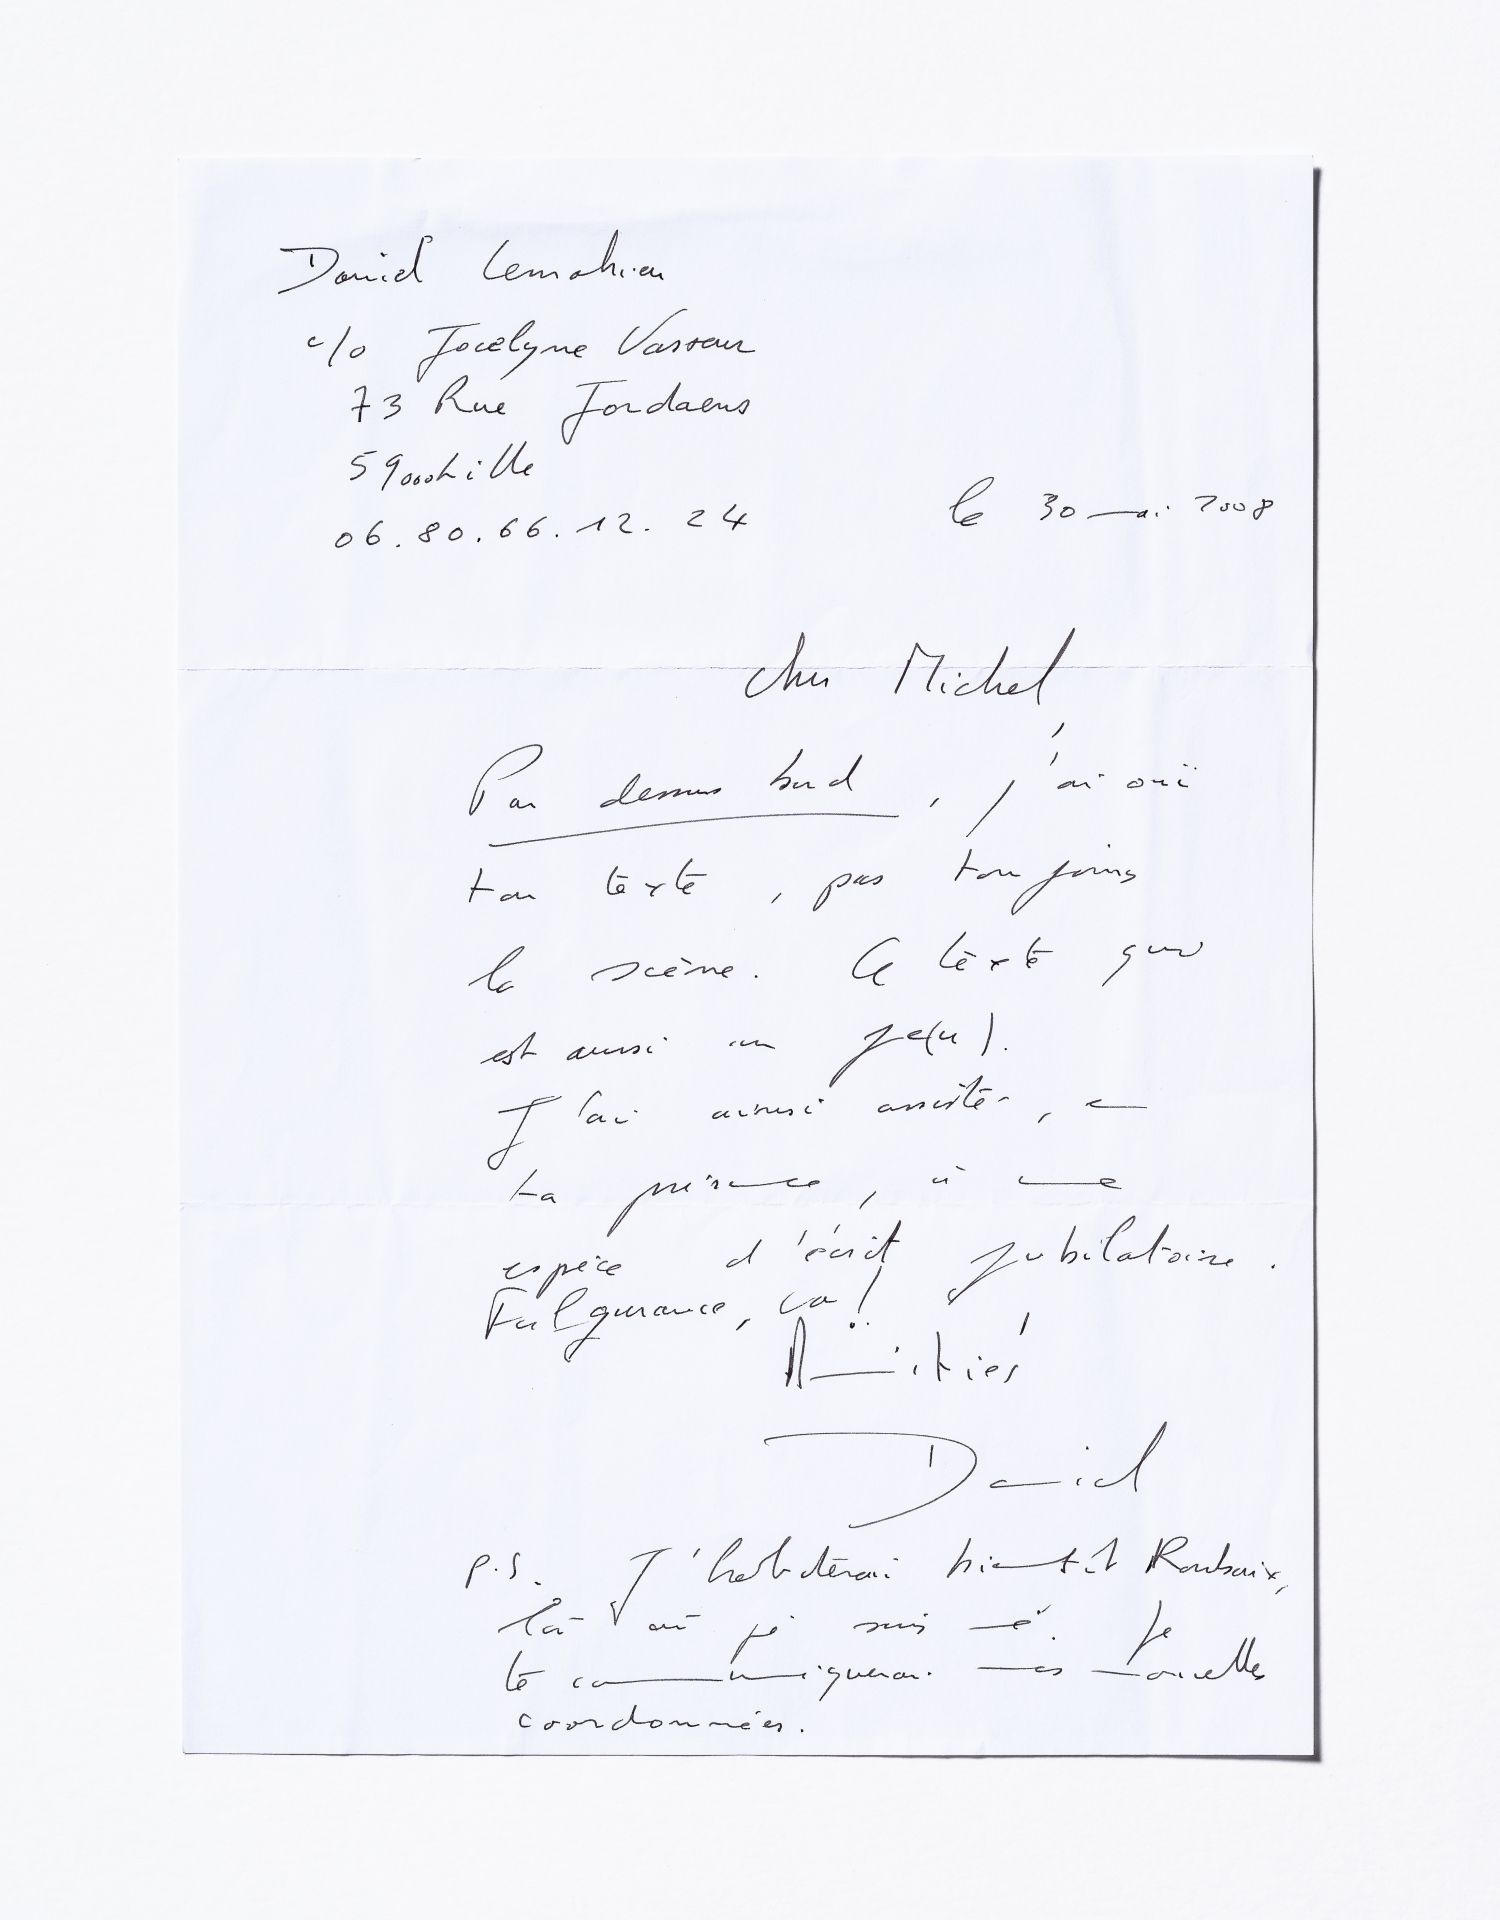 Daniel Lemahieu
c/o Jocelyne Vasseur
73 Rue Jordaens
59000 Lille
06.80.66.12.24
le 30 mai 2008
Cher Michel,
Par dessus bord, j'ai ouï
ton texte, pas toujours
la scène. Ce texte qui
est aussi un je(u).
J'ai ainsi assisté, en
ta présence, à une
espèce d'écrit jubilatoire.
Fulgurance, va!
Amitiés
Daniel
P.S. J'habiterai bientôt Roubaix,
là où je suis né. Je
te communiquerai mes nouvelles
coordonnées.